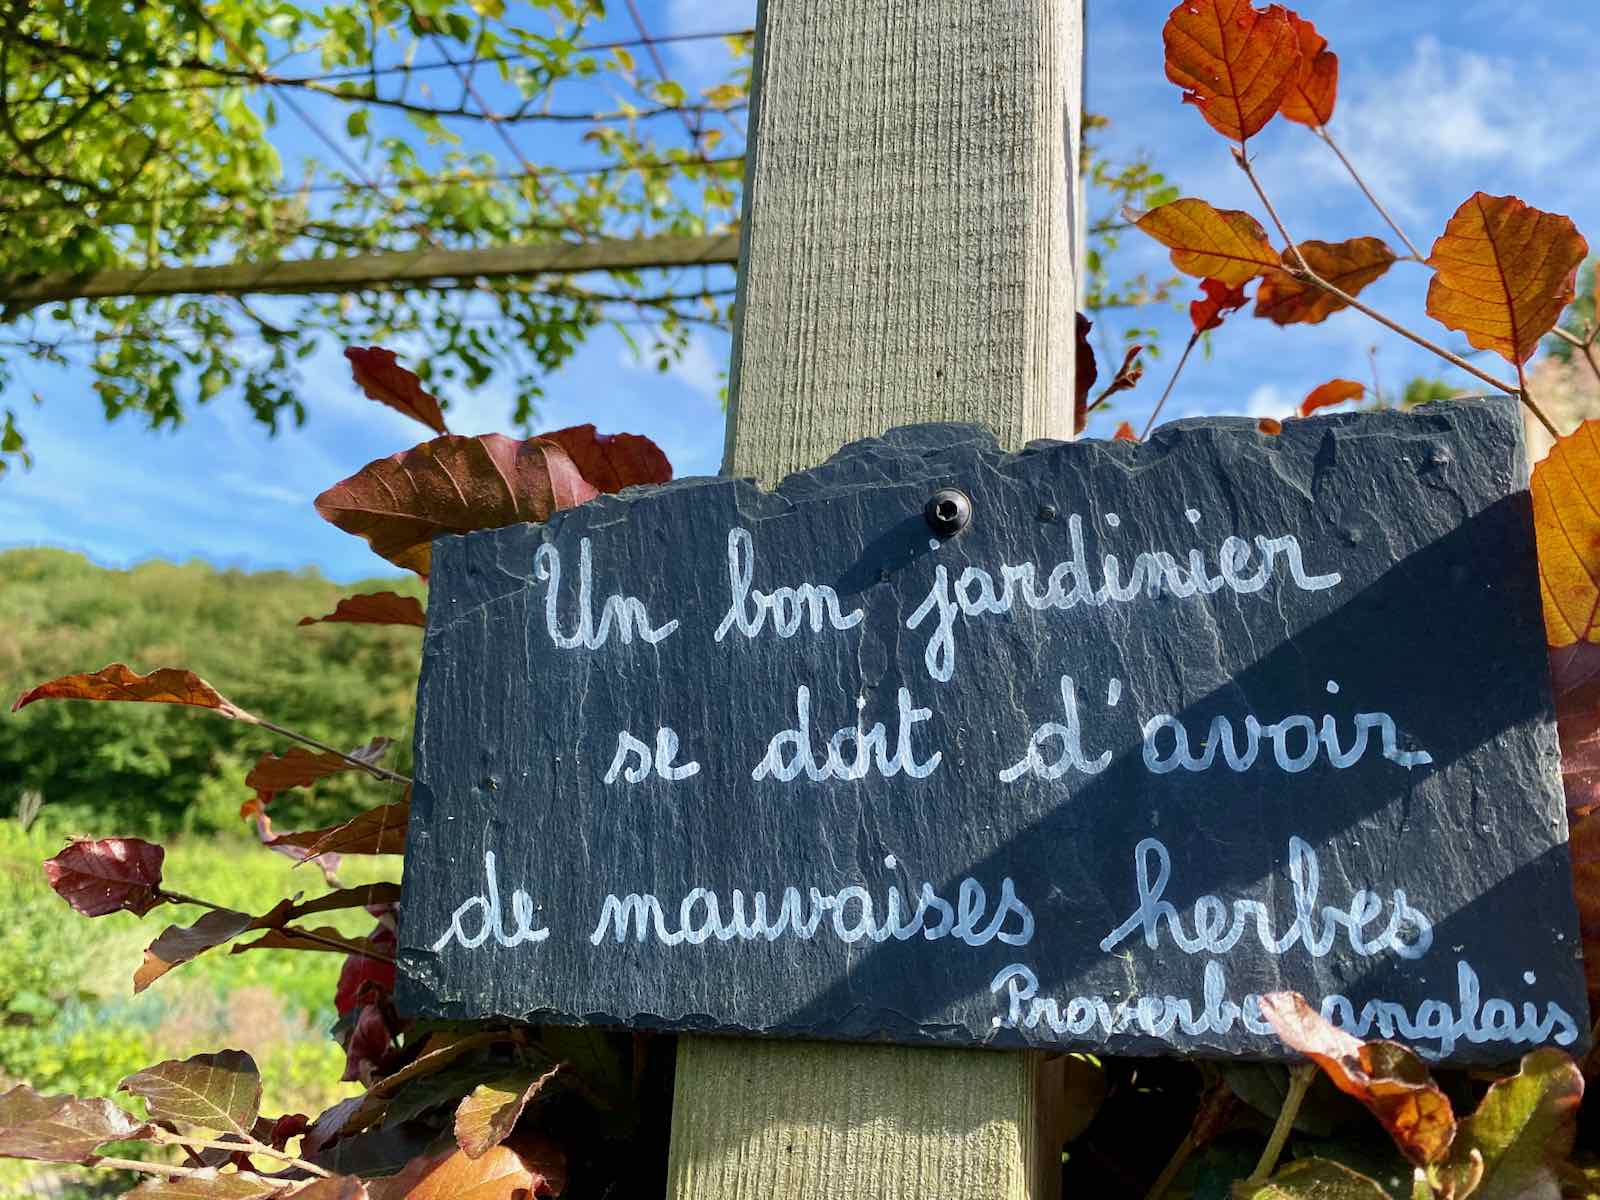 Un bon jardinier
se doit d'avoir
de mauvaises herbes
Proverbe anglais